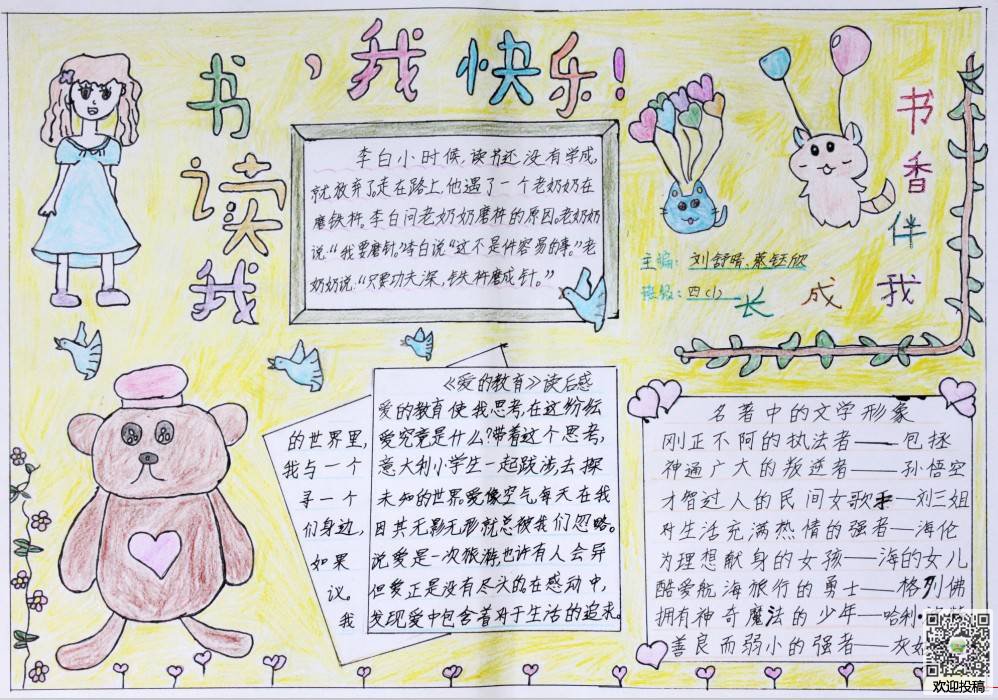 我读书，我快乐！
李白小时候，读书还没有学成，
就放弃了。走在路上，他遇了一个老奶奶在
磨铁杵。李白问老奶奶磨杵的原因。老奶奶
说“我要磨针。”李白说“这不是件容易的事。”老
奶奶说：“只要功夫深，铁杵磨成针。”
书香伴我成长
主编：刘舒晴、蔡钰欣
班级：四(1)
《爱的教育》读后感
爱的教育使我思考，在这纷纭
的世界里，
爱究竟是什么？带着这个思考，
我与一个
意大利小学生一起跋涉，去探
寻一个
未知的世界。爱像空气，每天在我
们身边，
因其无影无形就总被我们忽略。
如果
说爱是一次旅游，也许有人会异
议。
但爱正是没有尽头的，在感动中，
我
发现爱中包含着对于生活的追求。
名著中的文学形象
刚正不阿的执法者——包拯
神通广大的叛逆者——孙悟空
才智过人的民间女歌手—刘三姐
对生活充满热情的强者—海伦
为理想献身的女孩—海的女儿
酷爱航海旅行的勇士—格列佛
拥有神奇魔法的少年—哈利·
善良而弱小的强者—灰
欢迎投稿